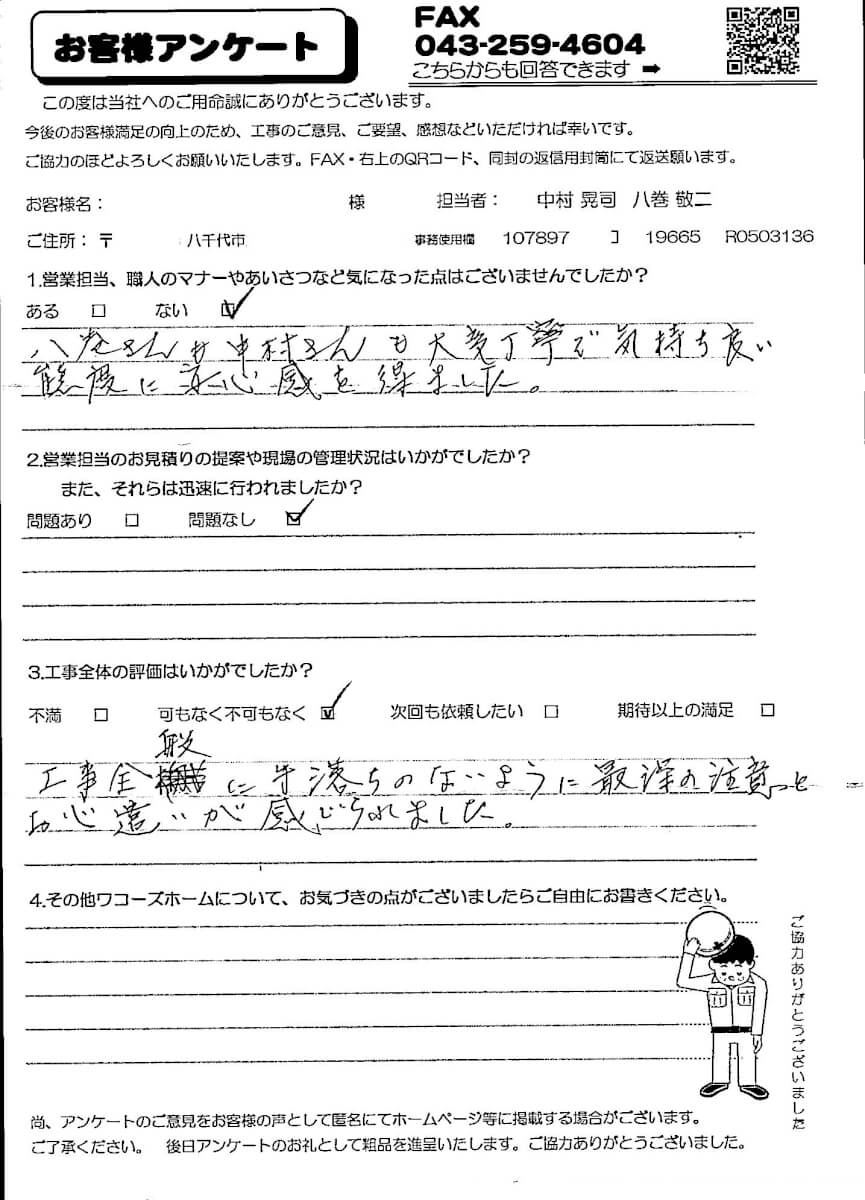 お客様アンケート
FAX
043-259-4604
こちらからも回答できます ➡
この度は当社へのご用命誠にありがとうございます。
今後のお客様満足の向上のため、工事のご意見、ご要望、感想などいただければ幸いです。
ご協力のほどよろしくお願いいたします。FAX・右上のQRコード、同封の返信用封筒にて返送願います。
お客様名： 様 担当者： 中村 晃司 八巻 敬二
ご住所：〒 八千代市 事務使用欄 107897 コ 19665 R0503136
1.営業担当、職人のマナーやあいさつなど気になった点はございませんでしたか？
ある □ ない ☑
八巻さんも中村さんも大変丁寧で気持ち良い
態度に安心感を得ました。
2.営業担当のお見積りの提案や現場の管理状況はいかがでしたか？
また、それらは迅速に行われましたか？
問題あり □ 問題なし ☑
3.工事全体の評価はいかがでしたか？
不満 □ 可もなく不可もなく ☑ 次回も依頼したい □ 期待以上の満足 □
工事全般に手落ちのないように最深の注意と
お心遣いが感じられました。
4.その他ワコーズホームについて、お気づきの点がございましたらご自由にお書きください。
ご協力ありがとうございました
尚、アンケートのご意見をお客様の声として匿名にてホームページ等に掲載する場合がございます。
ご了承ください。 後日アンケートのお礼として粗品を進呈いたします。ご協力ありがとうございました。